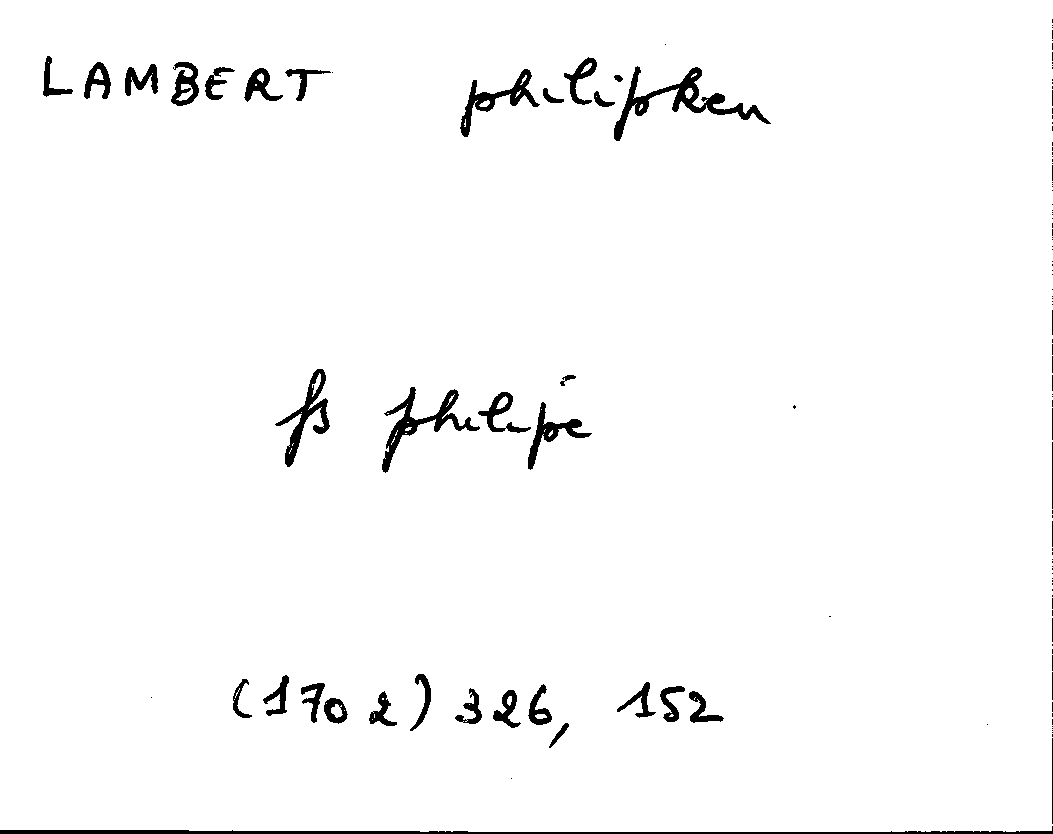 LAMBERT philipken
fs philipe
(1702) 326, 152